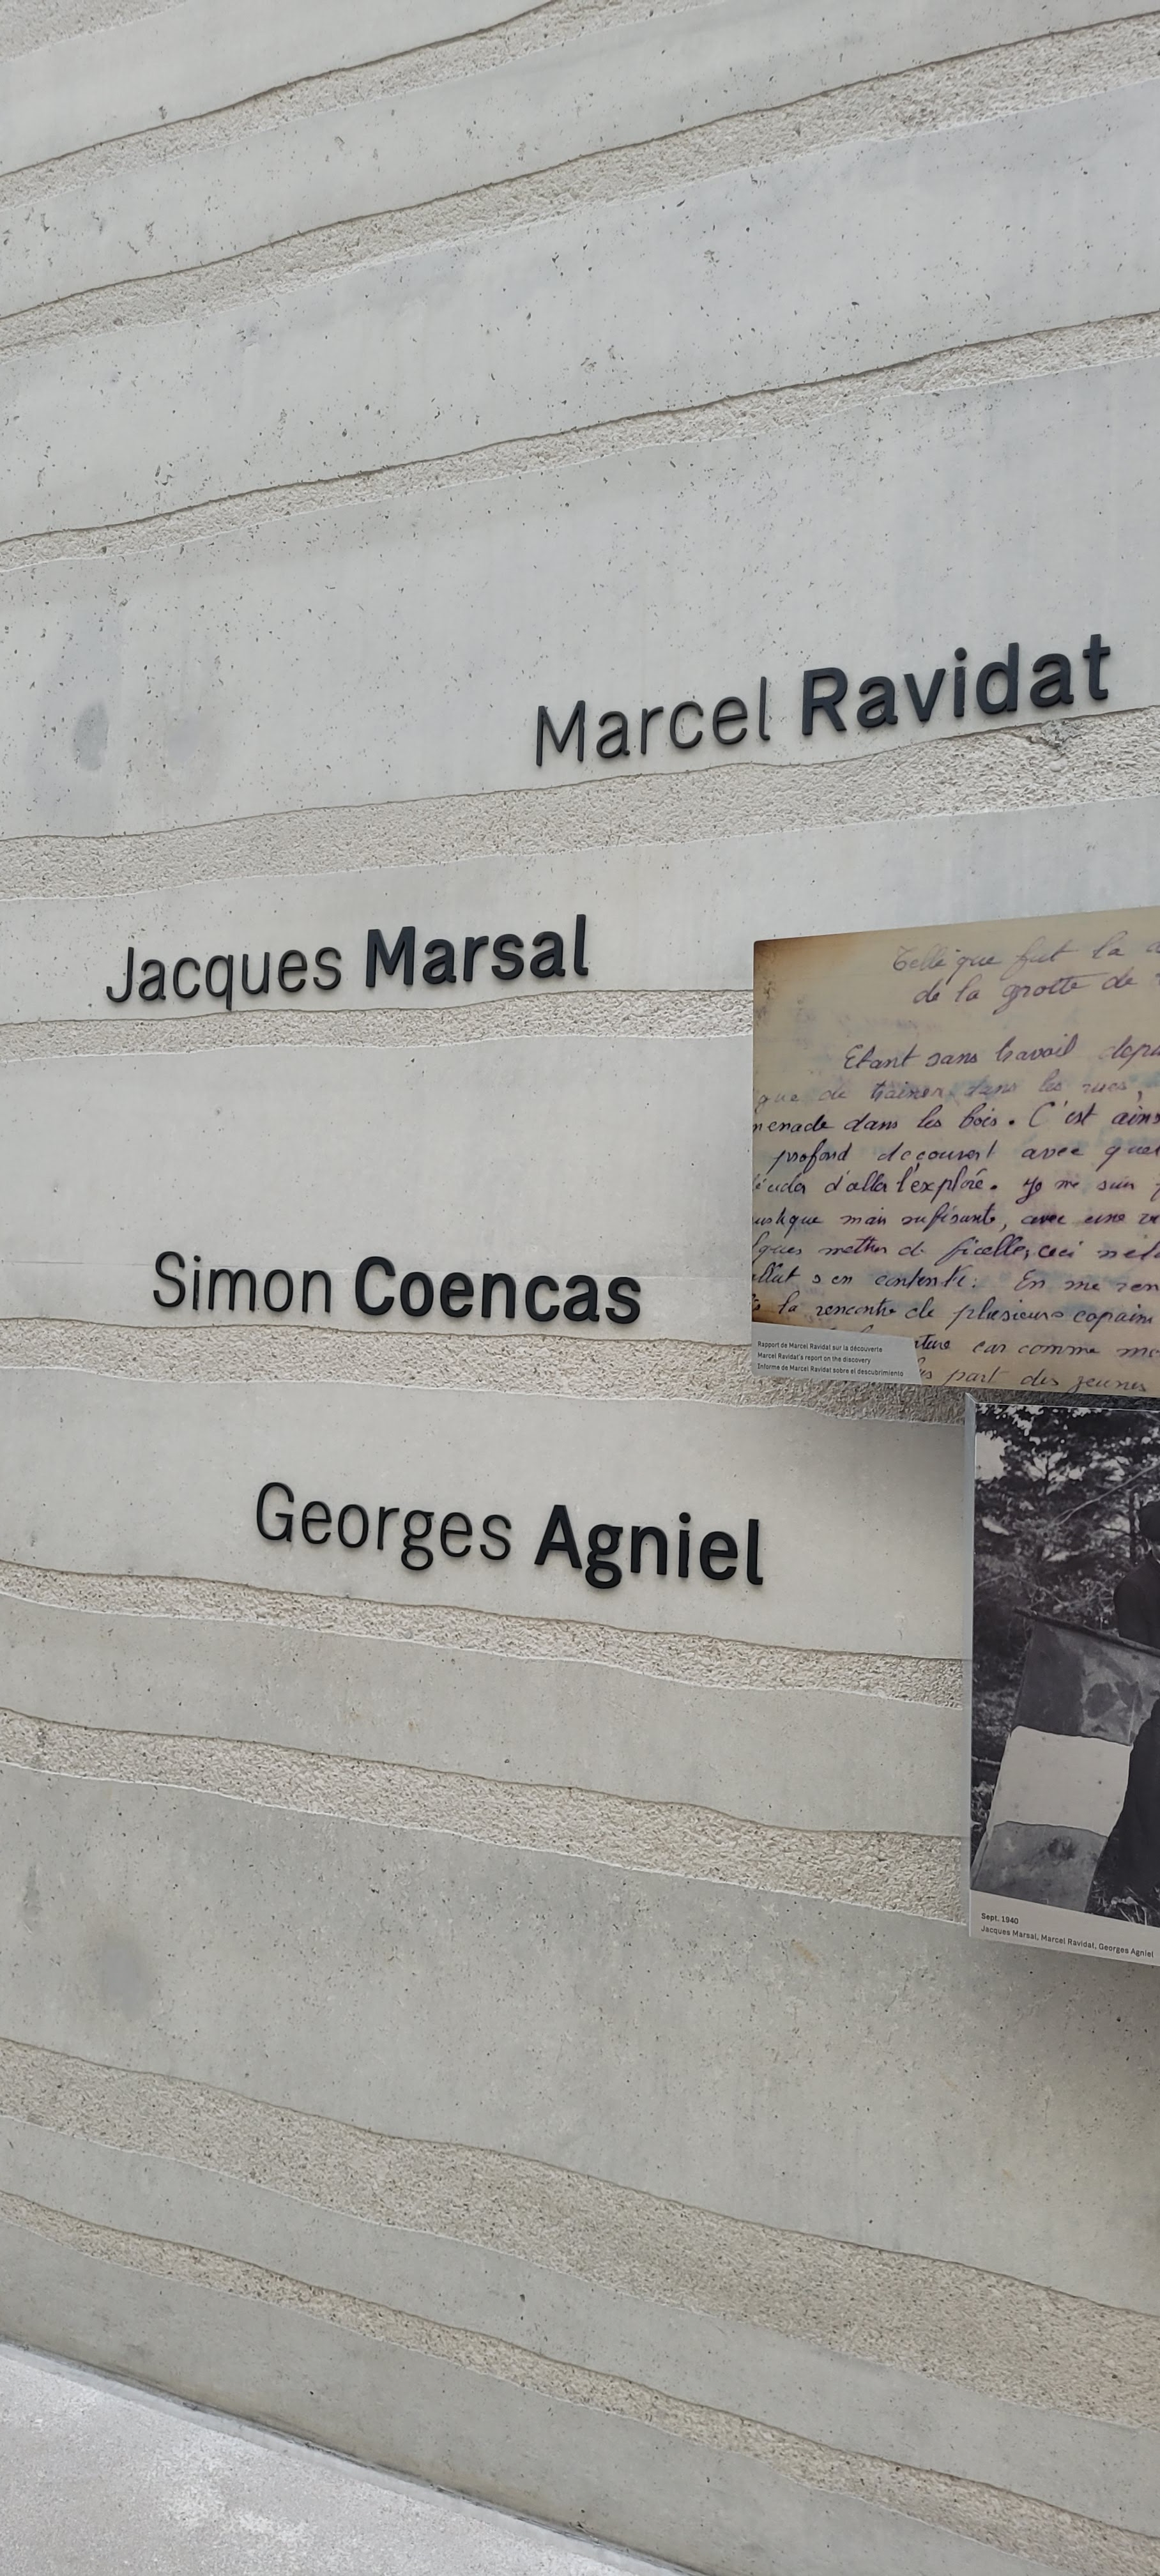 Marcel Ravidat
Jacques Marsal
Simon Coencas
Georges Agniel
Telle que fut la
de la grotte de
Etant sans travail
que de trainer dans les rues,
dans les bois. C'est
profond decouvert avec
d'aller l'explore. Je me suis
mais sufisante, avec une
ficelle, ceci
s'en contente. En me
la rencontre de plusieurs copains
car comme
part des jeunes
Rapport de Marcel Ravidat sur la découverte
Marcel Ravidat's report on the discovery
Informe de Marcel Ravidat sobre el descubrimiento
Sept. 1940
Jacques Marsal, Marcel Ravidat, Georges Agniel